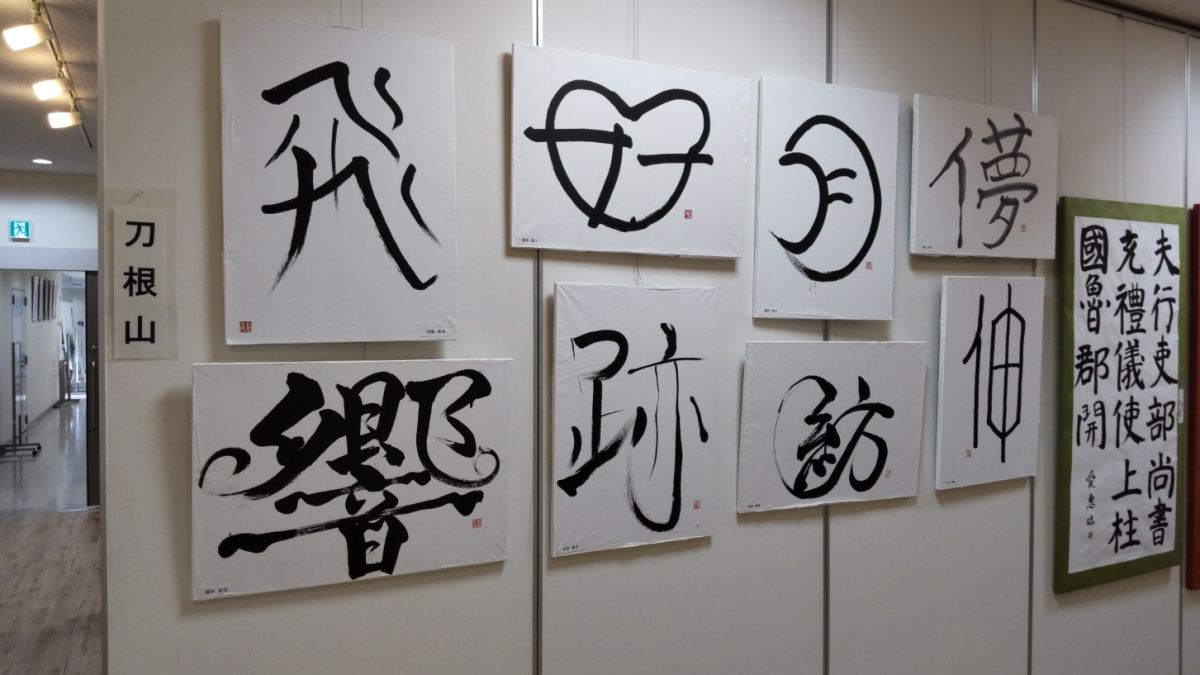 刀根山
飛
好
月
儚
響
跡
訪
伸
夫行吏部尚書
充禮儀使上柱
國魯郡開
愛惠臨